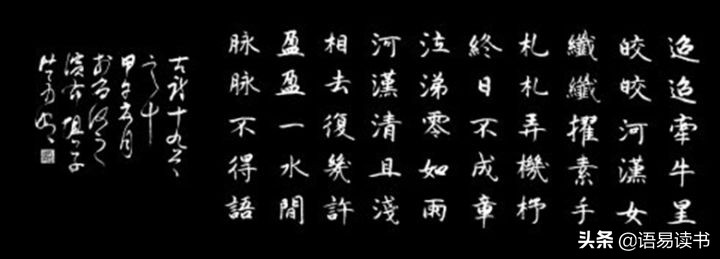 迢迢牽牛星
皎皎河漢女
纖纖擢素手
札札弄機杼
終日不成章
泣涕零如雨
河漢清且淺
相去復幾許
盈盈一水間
脉脉不得語
古詩十九首
之十
头条 @语易读书